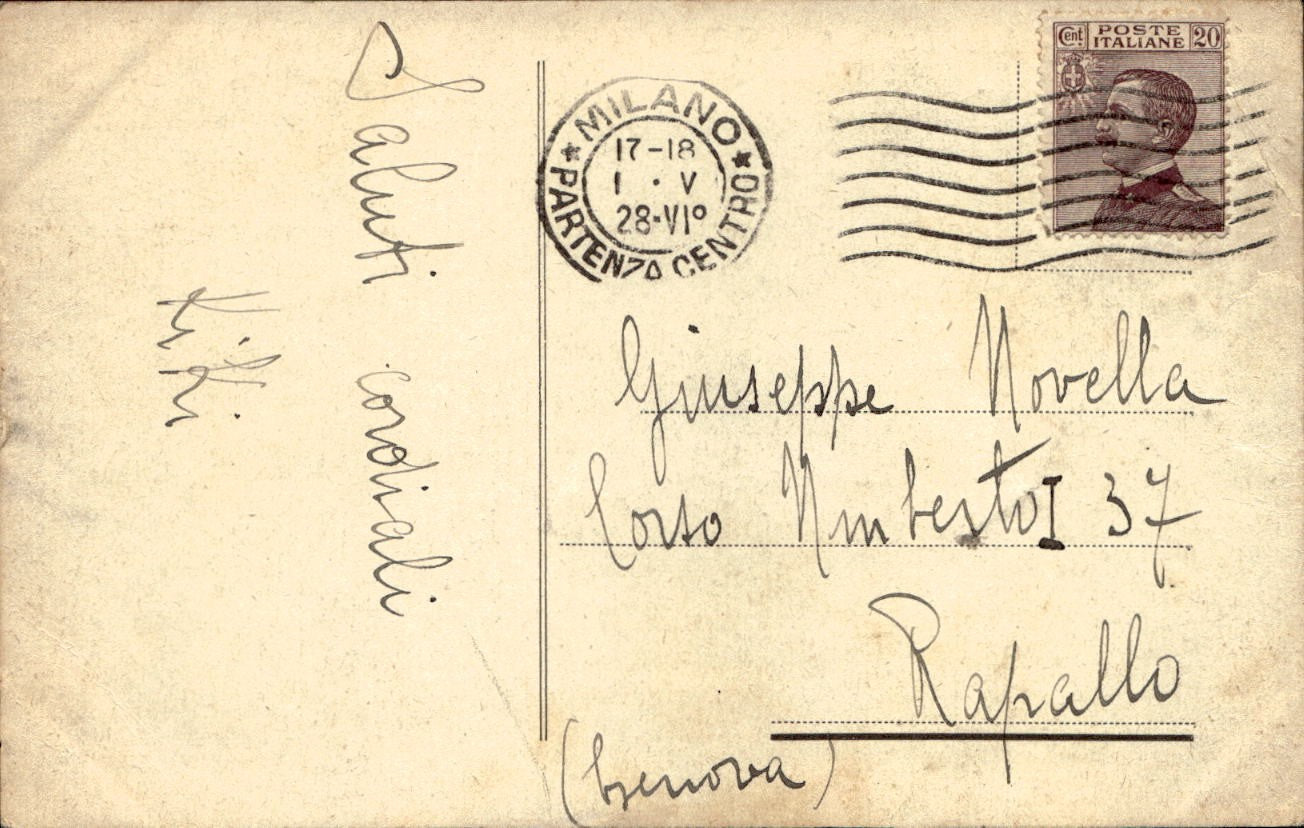 Saluti cordiali
Cent POSTE ITALIANE 20
MILANO
17-18
1 · V
28·VI°
PARTENZA CENTRO
Giuseppe Novella
Corso Umberto I 37
Rapallo
(Genova)